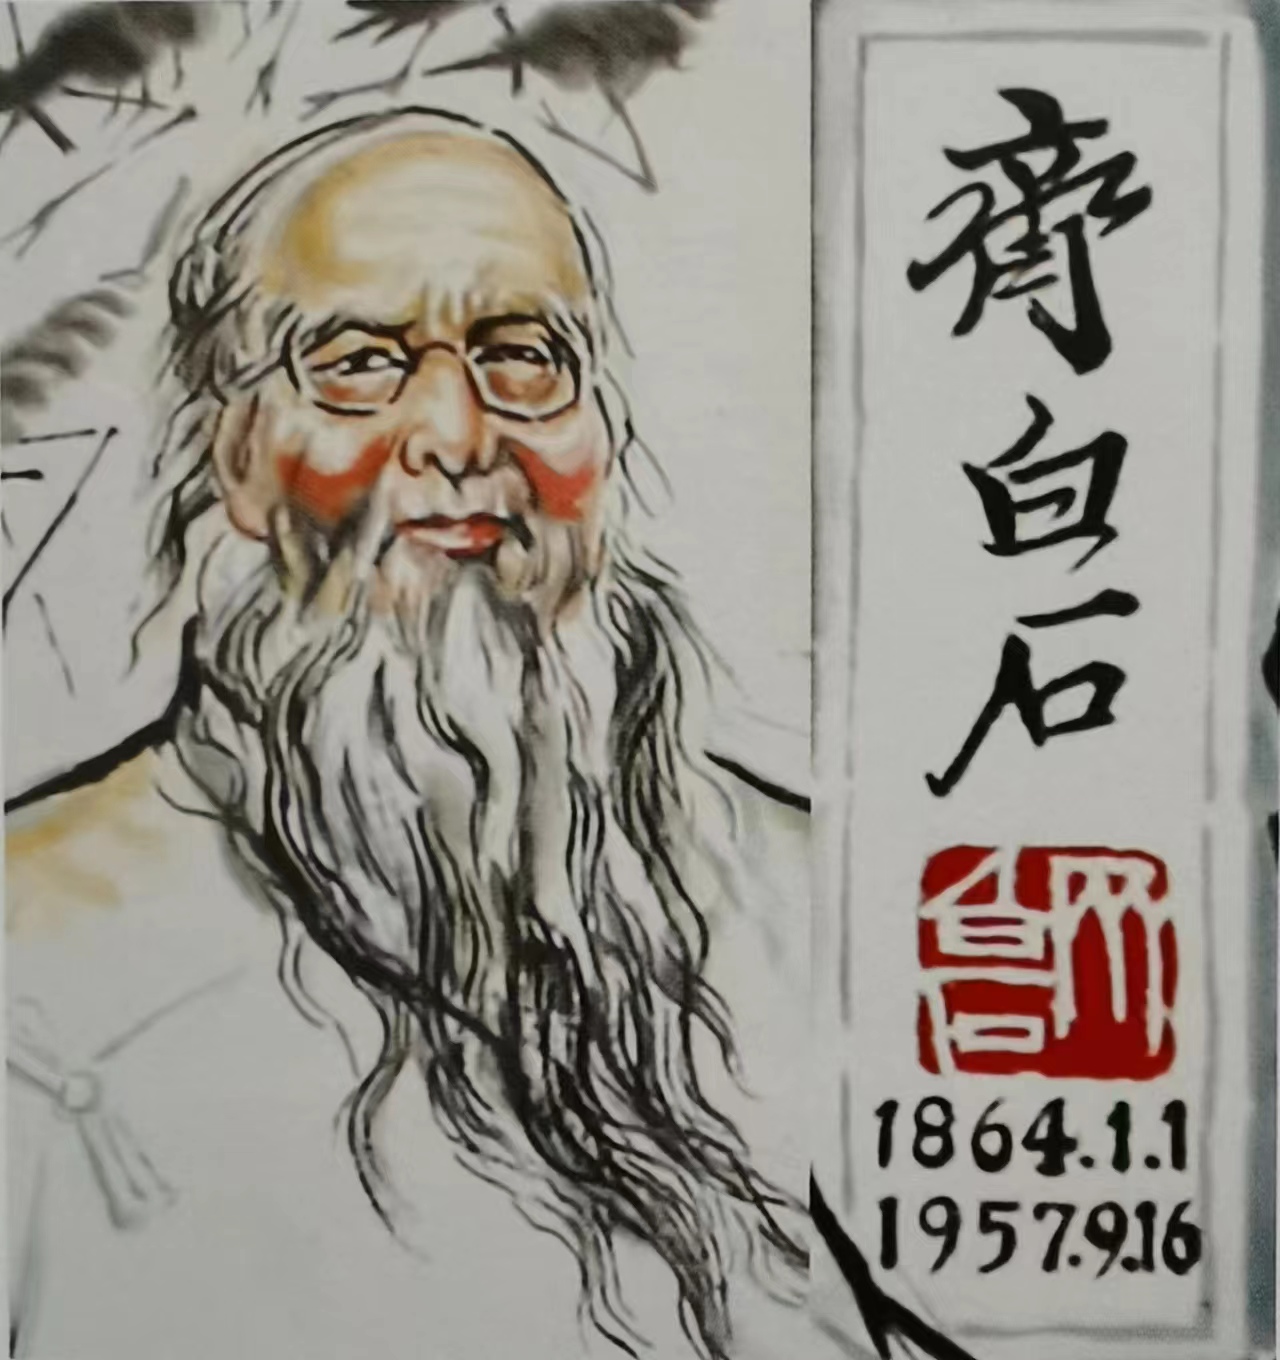 齊白石
齊白石
1864.1.1
1957.9.16